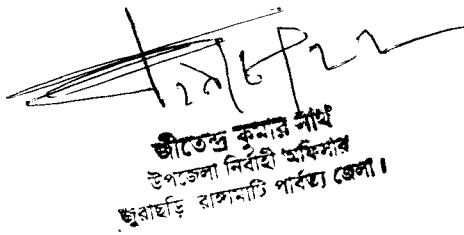 জীতেন্দ্র কুমার নাথ
উপজেলা নির্বাহী অফিসার
জুরাছড়ি রাঙ্গামাটি পার্বত্য জেলা।